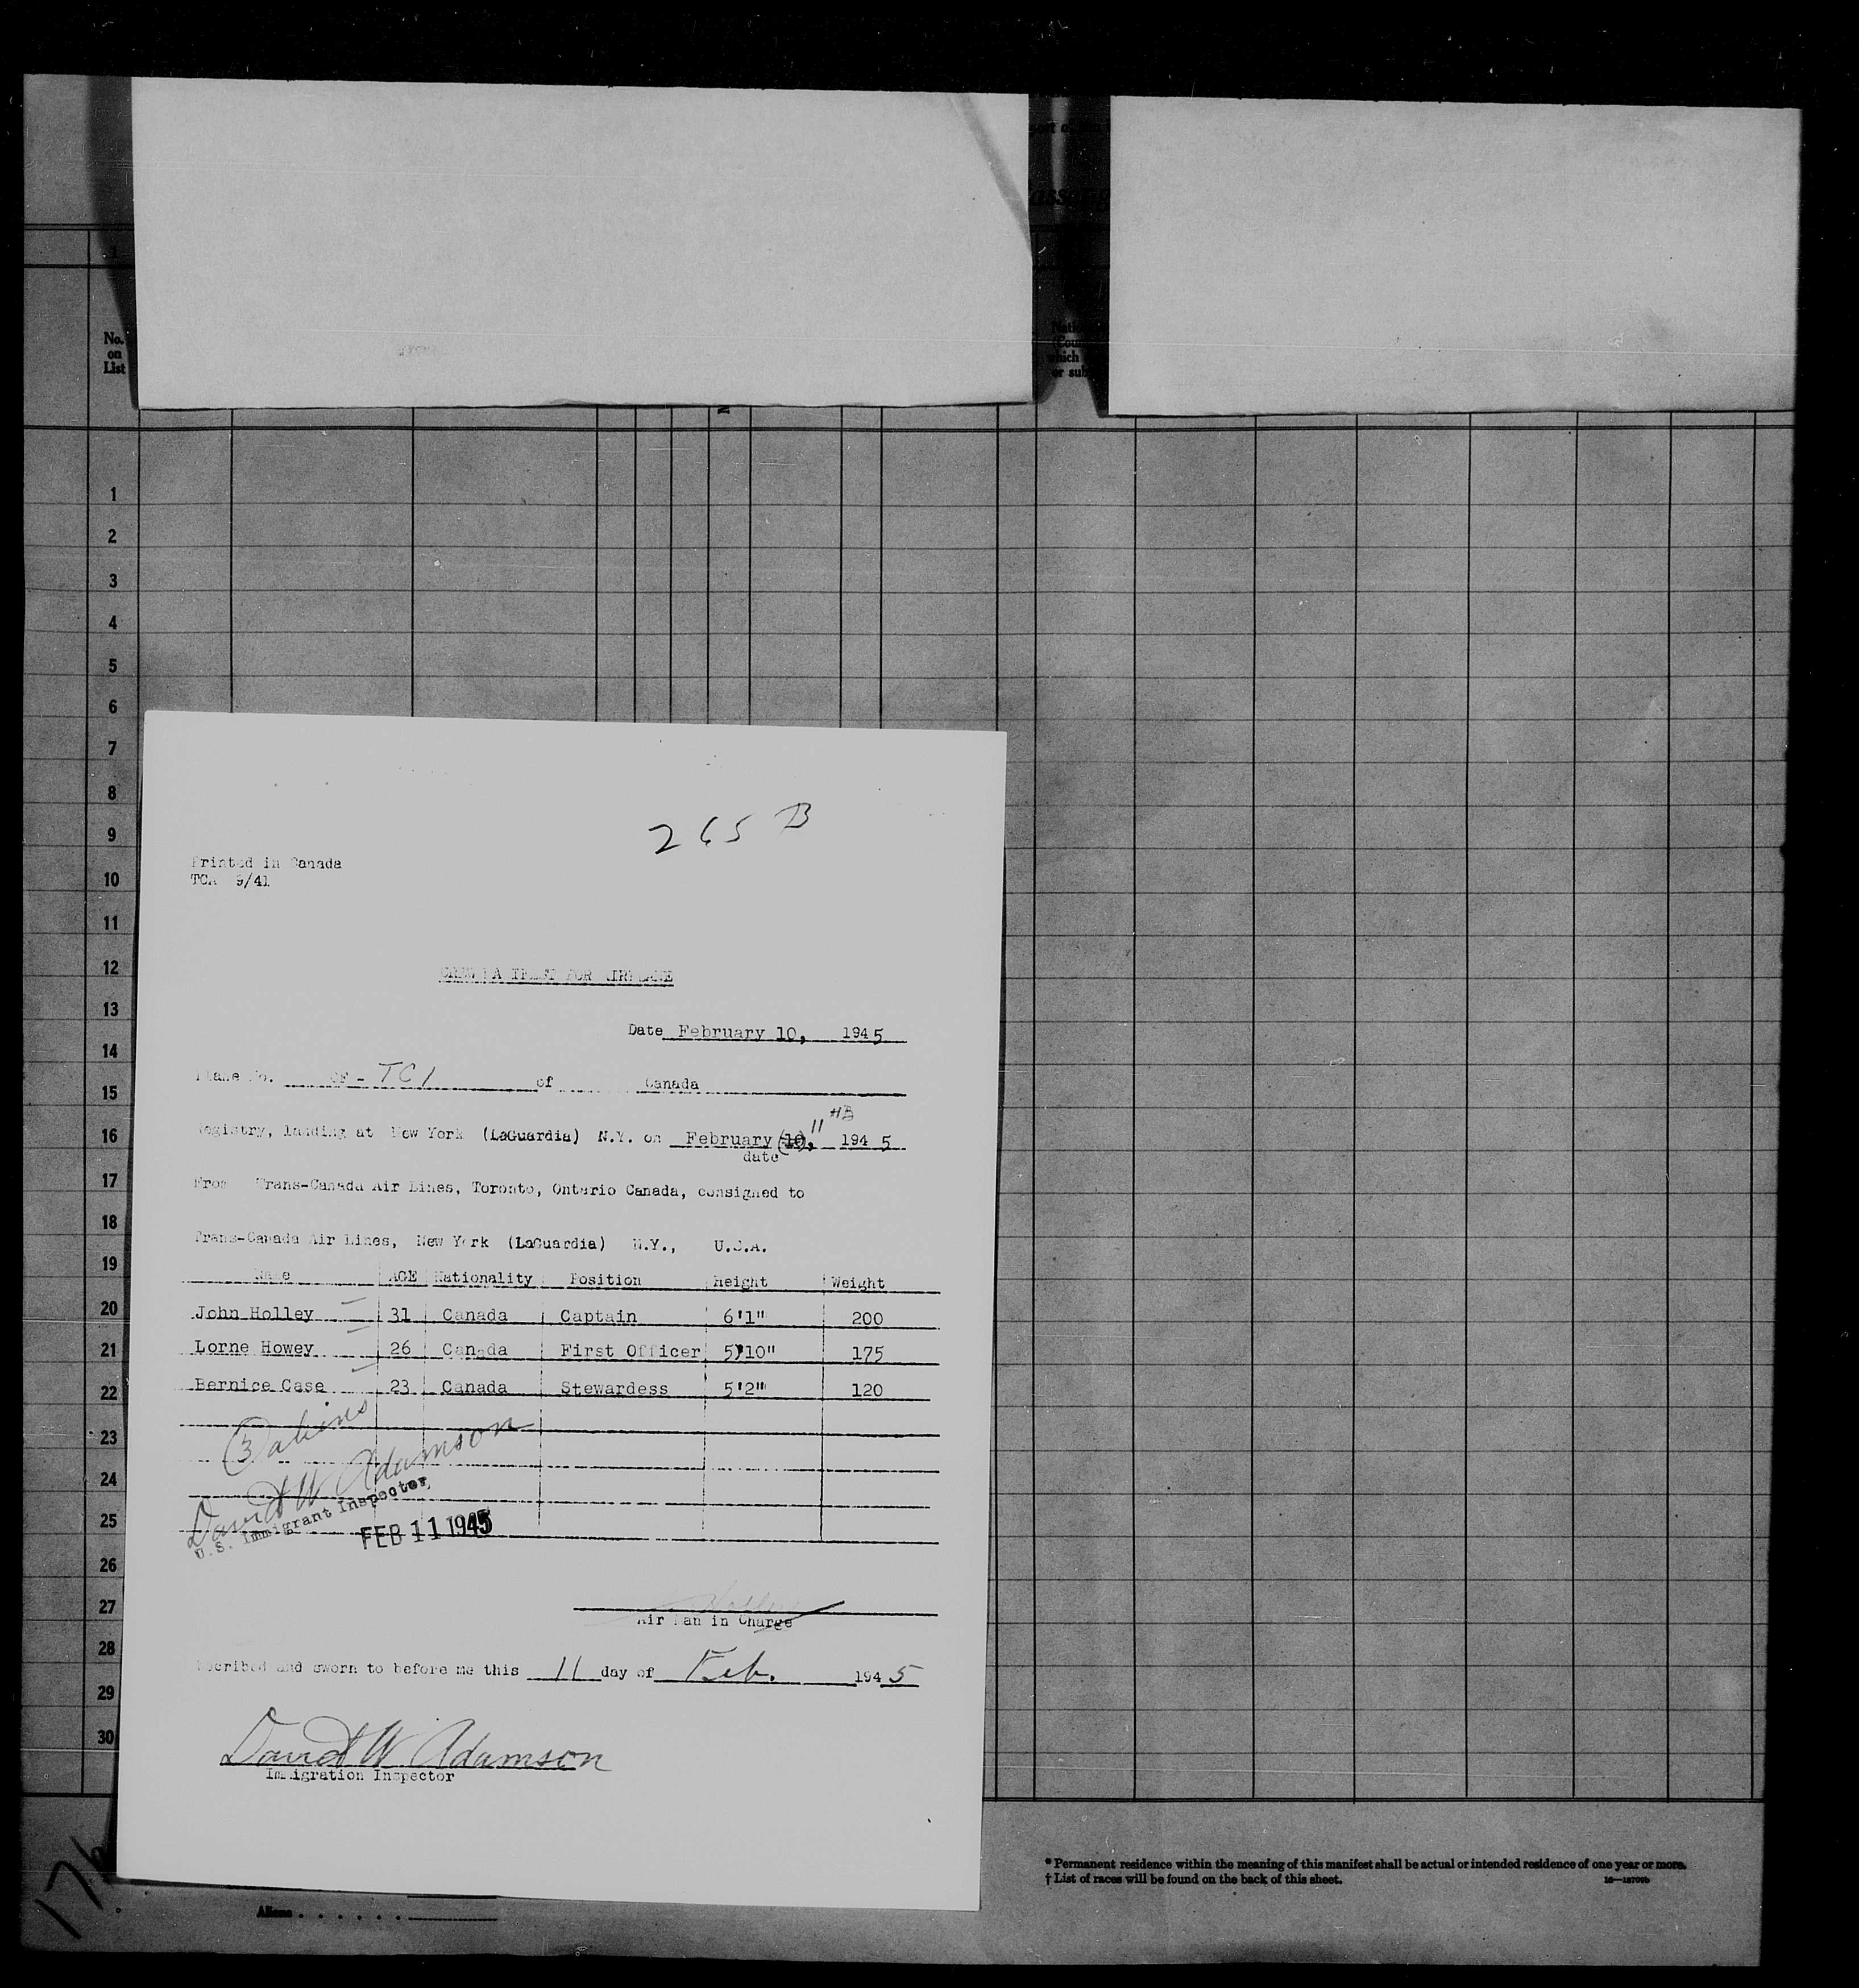 No.
on
List
1
2
3
4
5
6
7
8
9
10
11
12
13
14
15
16
17
18
19
20
21
22
23
24
25
26
27
28
29
30
265 B
Printed in Canada
TCA 9/41
CREW MANIFEST FOR AIRPLANE
Date February 10, 1945
Plane No. CF - TCI of Canada
Registry, landing at New York (LaGuardia) N.Y. on February (10), 11 HB 1945
date
From Trans-Canada Air Lines, Toronto, Ontario Canada, consigned to
Trans-Canada Air Lines, New York (LaGuardia) N.Y., U.S.A.
Name AGE Nationality Position Height Weight
John Holley 31 Canada Captain 6'1" 200
Lorne Howey 26 Canada First Officer 5'10" 175
Bernice Case 23 Canada Stewardess 5'2" 120
(3) aliens
David W Adamson
U.S. Immigrant Inspector
FEB 11 1945
Holley
Air Man in Charge
scribed and sworn to before me this 11 day of Feb. 1945
David W Adamson
Immigration Inspector
Aliens
* Permanent residence within the meaning of this manifest shall be actual or intended residence of one year or more.
† List of races will be found on the back of this sheet.